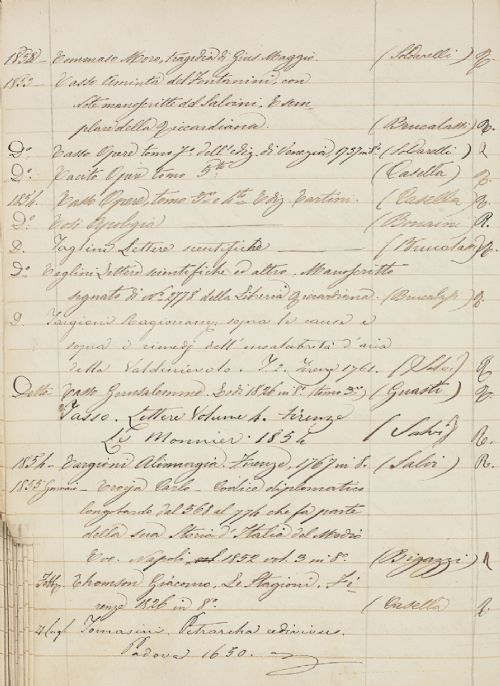 1838 - Tommaso Moro, tragedia di Gius. Maggio (Soldarelli) R.
1853 - Tasso Aminta del Fontanini, con
Note manoscritte del Salvini, Esem-
plare della Riccardiana. (Brucalassi) R.
Do. Tasso Opere tomo 7o. dell'ediz. di Venezia, 1737 in 8o (Soldarelli) R
Do. Tacito Opere tomo 5to (Casella) R.
1854. Tasso Opere, tomo 3zo e 4to Ediz. Tartini. (Casella) R.
Do. Vedi Apologia (Bonaini) R.
D. Taglini Lettere scientifiche (Brucalassi) R.
Do. Teglini Lettere scientifiche ed altro. Manoscritto
segnato di No. 2778 della Libreria Riccardiana. (Brucalassi) R
D. Targioni Ragionam. sopra le cause e
sopra i rimedj dell'insalubrità d'aria
della Valdinievole. T. 2. Firenze 1761. (Salvi) R
Detto Tasso Gerusalemme. Ediz. 1826 in 8o. tomo 3zo (Guasti) R.
Tasso. Lettere Volume 4. Firenze
Le Monnier. 1854 (Salvi) R.
1854. Targioni Alimurgia. Firenze, 1767 in 8. (Salvi) R.
1855 Gennaio - Troja Carlo - Codice diplomatico
longobardo dal 568 al 774 che fa parte
della sua Storia d'Italia del Medio
Evo. Napoli 1852 vol. 3 in 8o. (Bigazzi) R
Febb. Thomson Giacomo, Le Stagioni. Fi-
renze 1826 in 8o. (Casella) R.
Lugl Tomasini, Petrarcha redivivus.
Padova 1650.